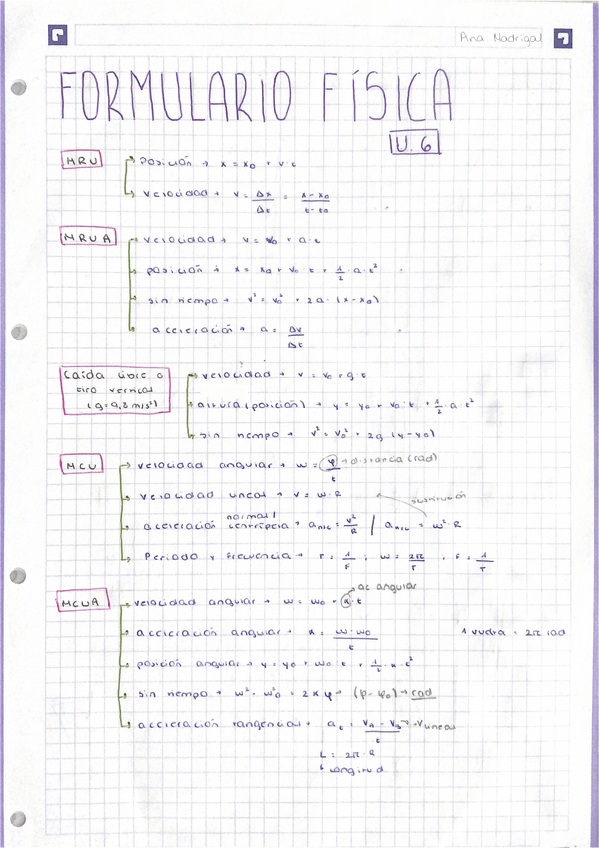 Ana Madrigal
FORMULARIO FÍSICA
U. 6
MRU
posición → x = x₀ + v·t
velocidad → v = Δx/Δt = x-x₀/t-t₀
MRUA
velocidad → v = v₀ + a·t
posición → x = x₀ + v₀·t + 1/2·a·t²
sin tiempo → v² = v₀² + 2a·(x-x₀)
aceleración → a = Δv/Δt
Caída libre o
tiro vertical
(g=9,8 m/s²)
velocidad → v = v₀ + g·t
altura (posición) → y = y₀ + v₀·t + 1/2·a·t²
sin tiempo → v² = v₀² + 2g (y-y₀)
MCU
velocidad angular → ω = φ/t → distancia (rad)
velocidad lineal → v = ω·R
sustitución
normal/
aceleración centrípeta → an/c = v²/R / an/c = ω²·R
Periodo y Frecuencia → T = 1/F ; ω = 2π/T ; F = 1/T
MCUA
→ ac angular
velocidad angular → ω = ω₀ + α·t
aceleración angular → α = ω-ω₀/t
1 vuelta = 2π rad
posición angular → φ = φ₀ + ω₀·t + 1/2·α·t²
sin tiempo → ω² - ω₀² = 2αφ → (φ-φ₀) → rad
aceleración tangencial → at = VA - VB/t → Vlineal
L = 2π·R
longitud